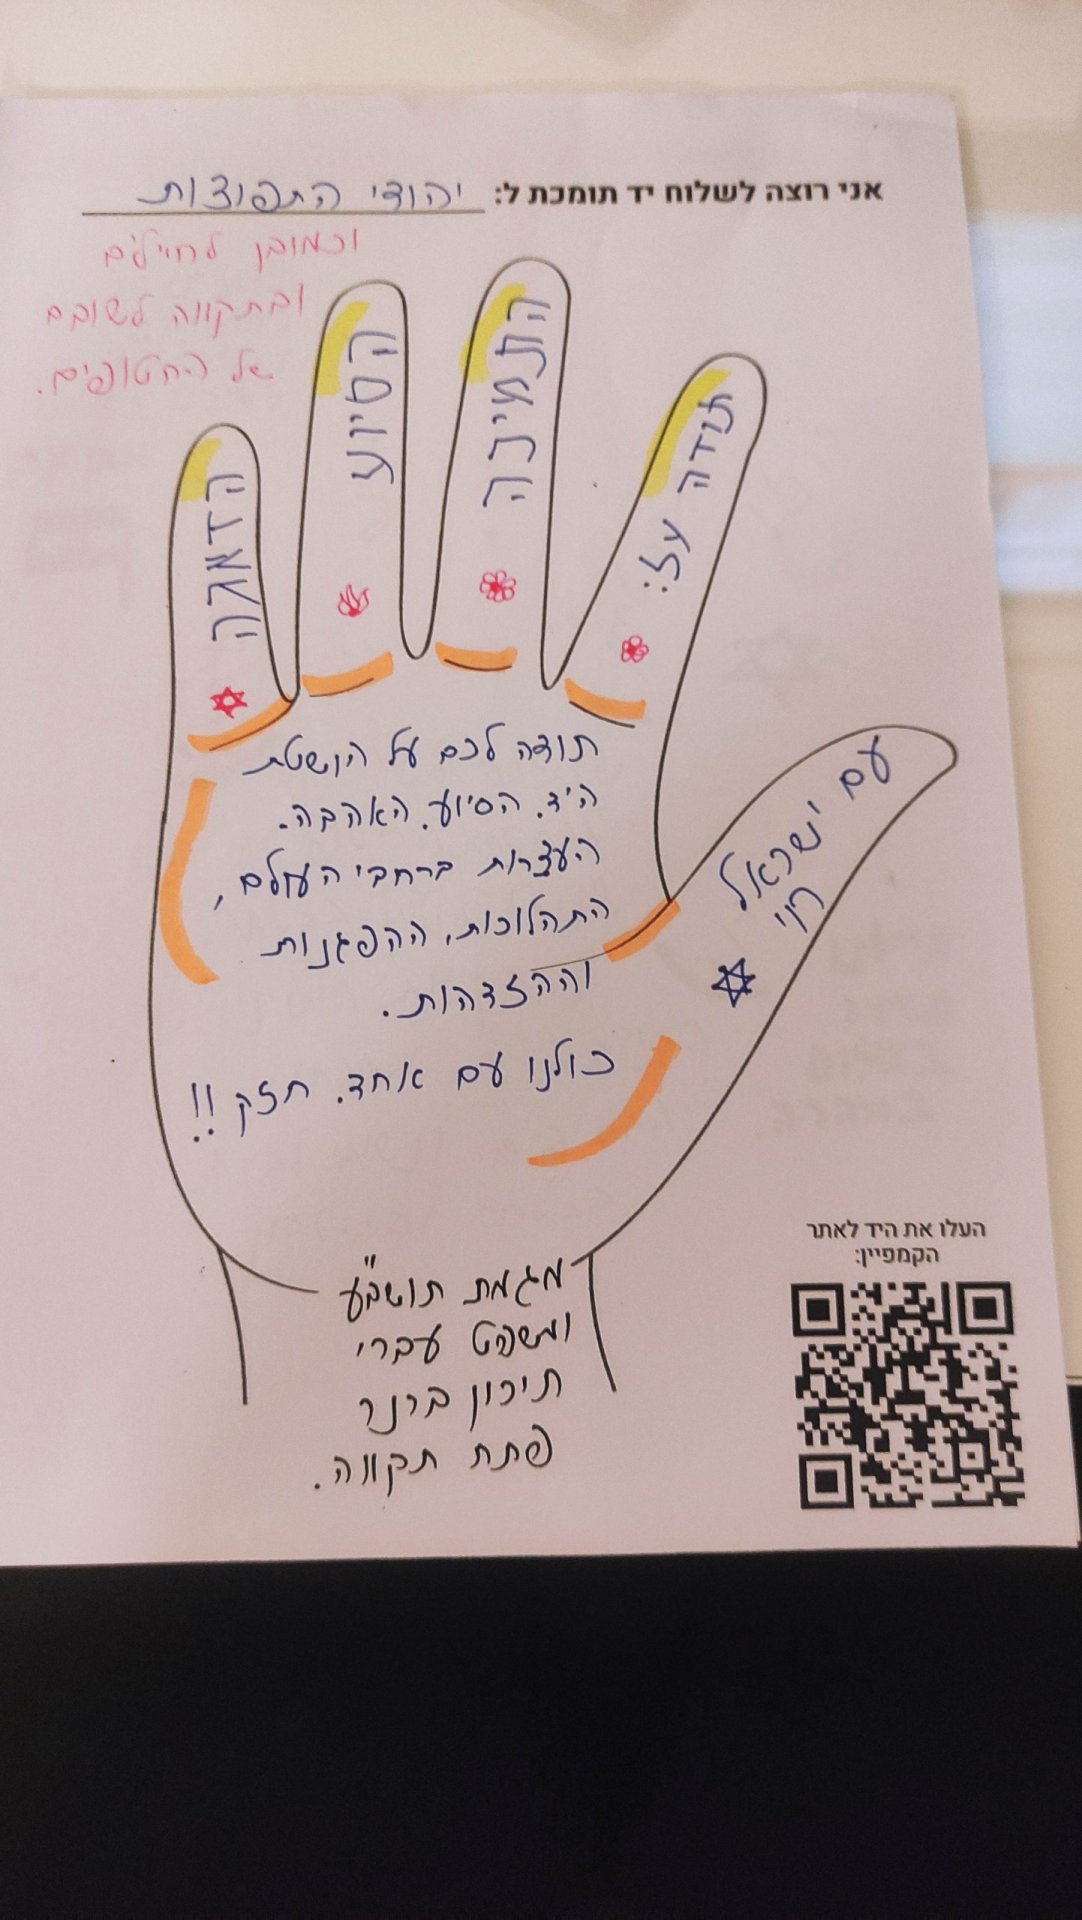 אני רוצה לשלוח יד תומכת ל: יהודי התפוצות
וכמובן לחיילים
ובתקווה לשובם
של החטופים.
תודה על:
התמיכה
הסיוע
הדאגה
עם ישראל
חי
תודה לכם על הושטת
היד. הסיוע. האהבה.
העצרות ברחבי העולם,
התהלוכות, ההפגנות
וההזדהות.
כולנו עם אחד. חזק !!
מגמת תושב"ע
ומשפט עברי
תיכון ברנר
פתח תקווה.
העלו את היד לאתר
הקמפיין: